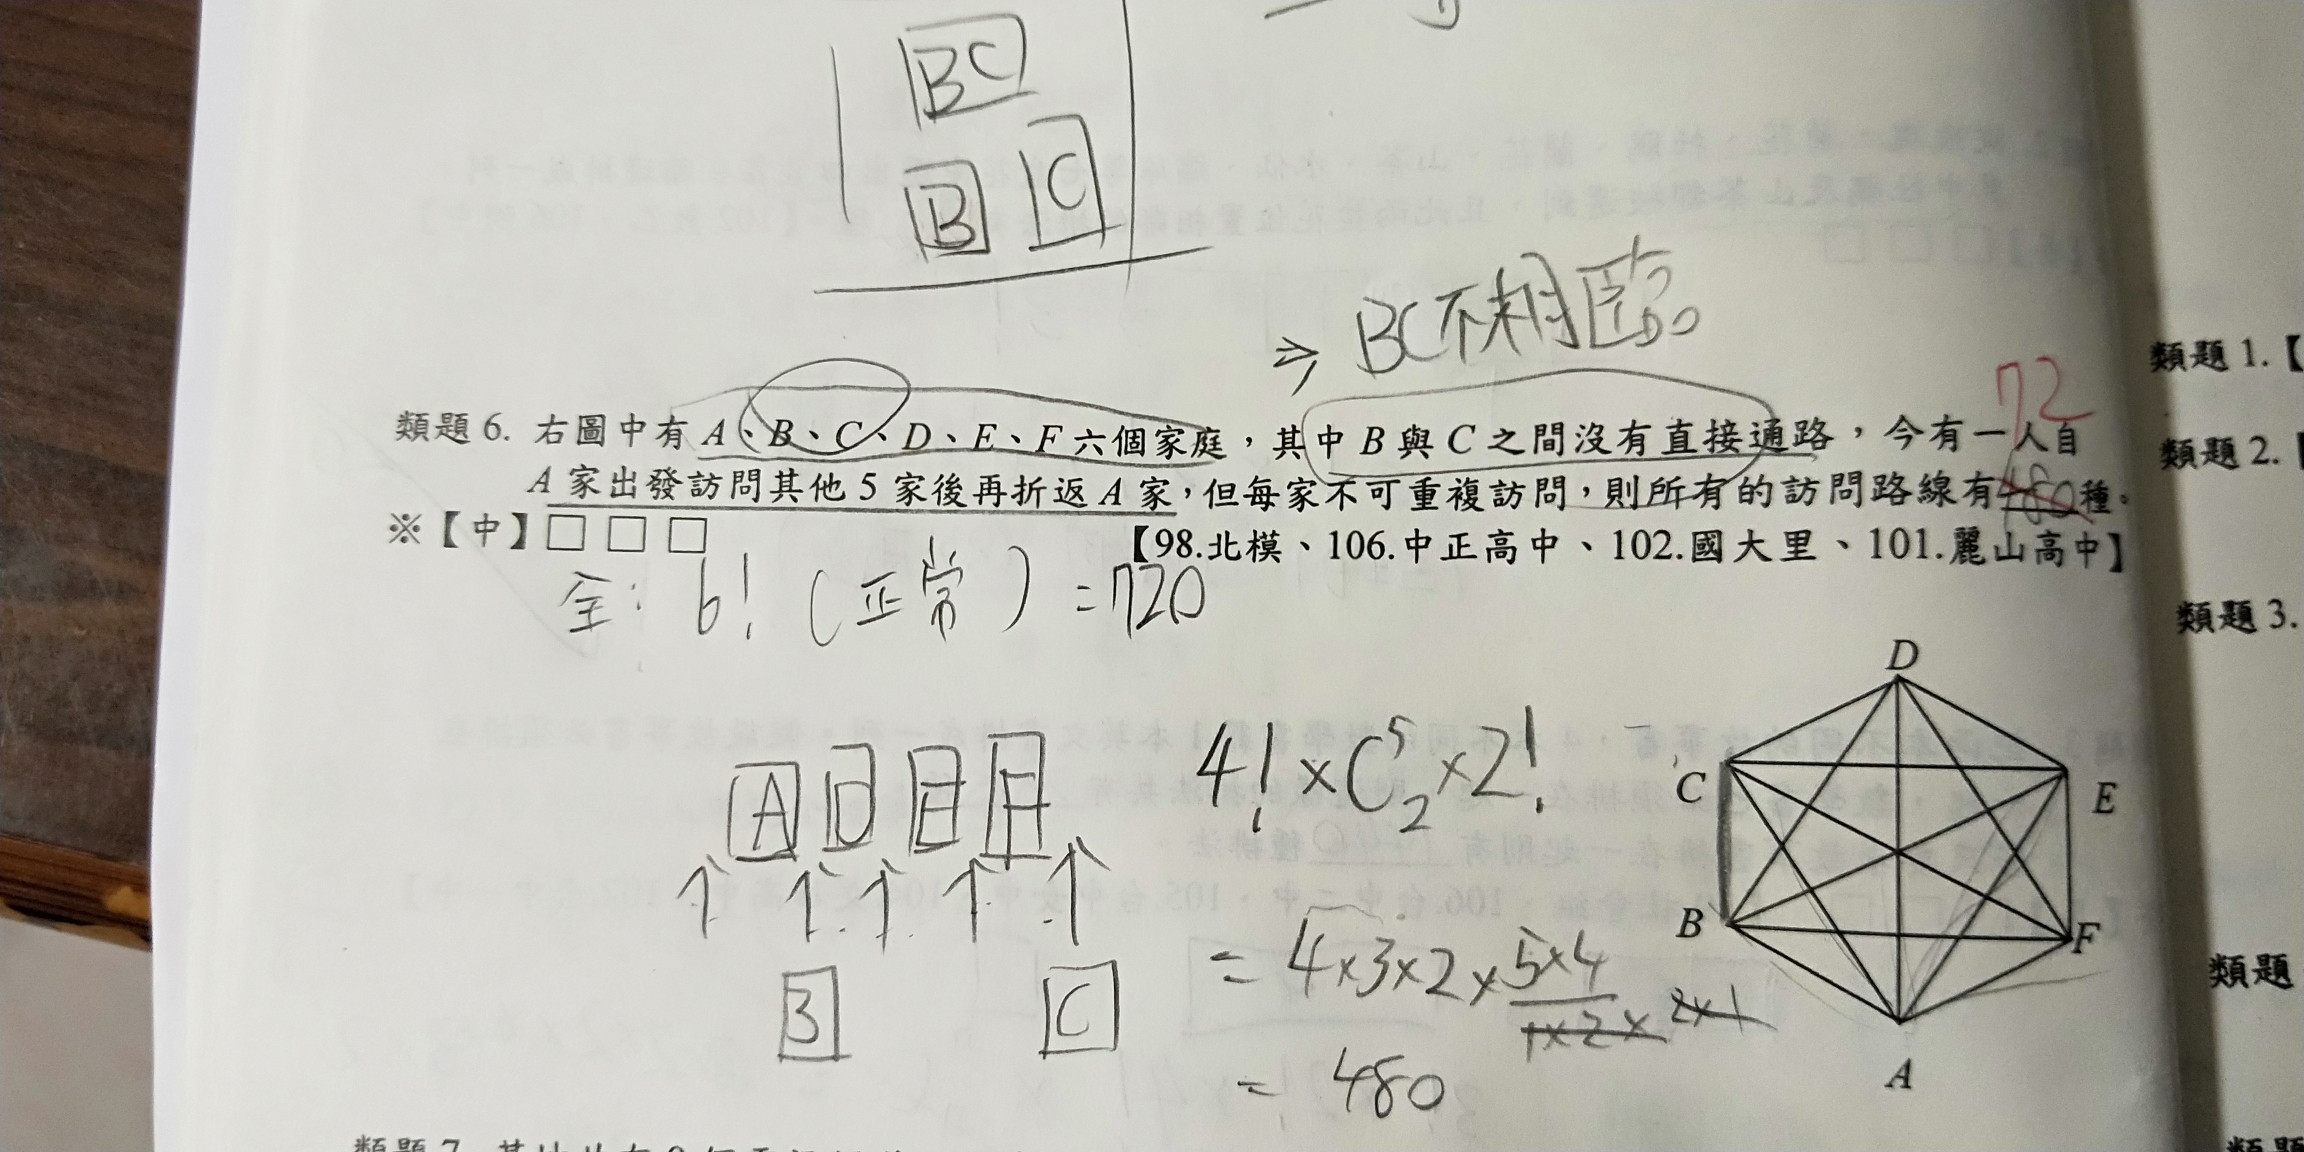 BC
B C
⇒ BC不相臨。
72
類題 6. 右圖中有 A、B、C、D、E、F 六個家庭，其中 B 與 C 之間沒有直接通路，今有一人自
A 家出發訪問其他 5 家後再折返 A 家，但每家不可重複訪問，則所有的訪問路線有480種。
※【中】□ □ □
【98.北模、106.中正高中、102.國大里、101.麗山高中】
全: 6! (正常) = 720
A D E F
↑ ↑ ↑ ↑ ↑
B C
4! × C⁵₂ × 2!
= 4×3×2×5×4
1×2× 2×1
= 480
D
C
E
B
F
A
類題 1.【
類題 2.
類題 3.
類題